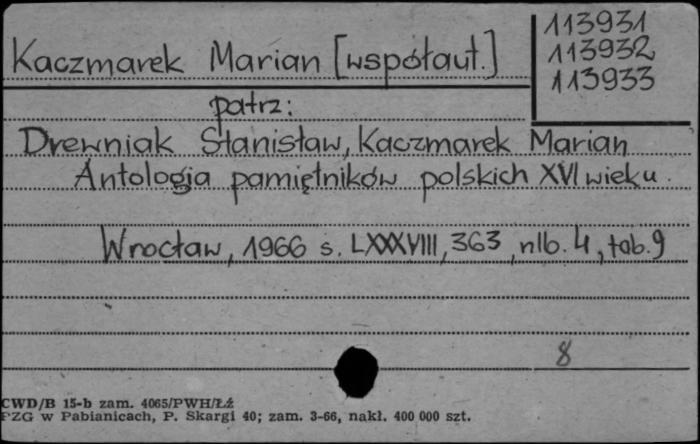 113931
Kaczmarek Marian [współaut.]
113932
113933
patrz:
Drewniak Stanisław, Kaczmarek Marian
Antologia pamiętników polskich XVI wieku.
Wrocław, 1966 s. LXXXVIII, 363, nlb. 4, tab. 9
8
CWD/B 15-b zam. 4065/PWH/Łź
PZG w Pabianicach, P. Skargi 40; zam. 3-66, nakł. 400 000 szt.